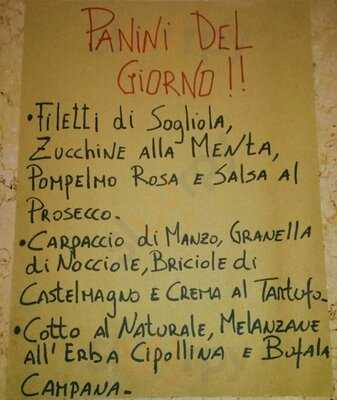 PANINI DEL
GIORNO!!
•Filetti di Sogliola,
Zucchine alla Menta,
Pompelmo Rosa e Salsa al
Prosecco.
•Carpaccio di Manzo, Granella
di Nocciole, Briciole di
Castelmagno e Crema al Tartufo.
•Cotto al Naturale, Melanzane
all'Erba Cipollina e Bufala
Campana.